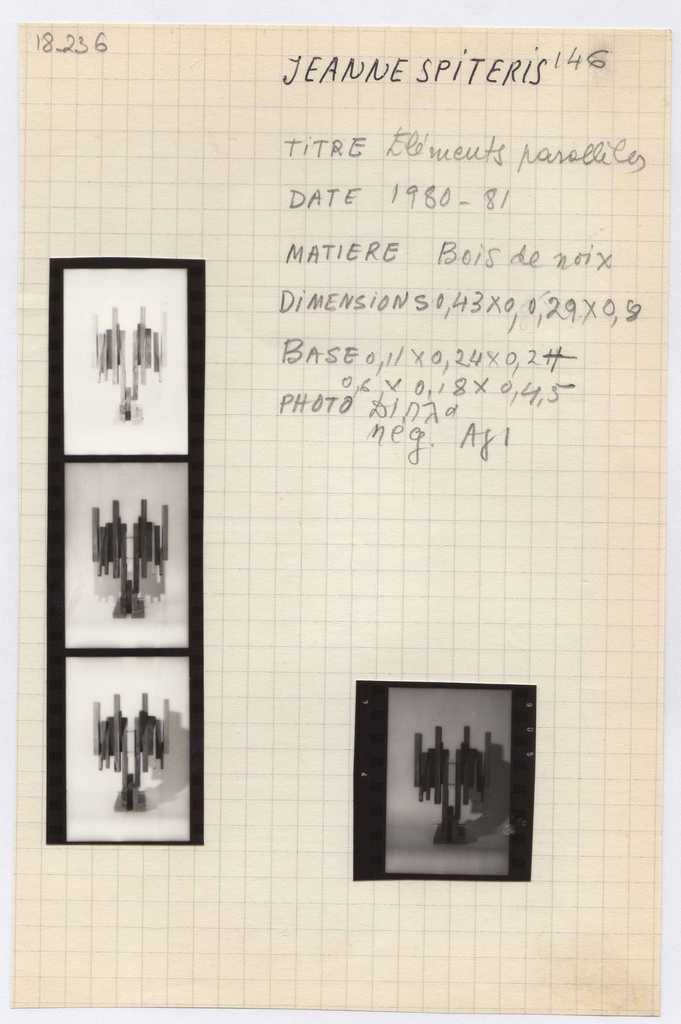 18-236
JEANNE SPITERIS 146
TITRE Eléments parallèles
DATE 1980-81
MATIERE Bois de noix
DIMENSIONS 0,43X0, 0,29X0,8
BASE 0,11X0,24X0,24
0,6X0,18X0,4,5
PHOTO Διπλα
neg.